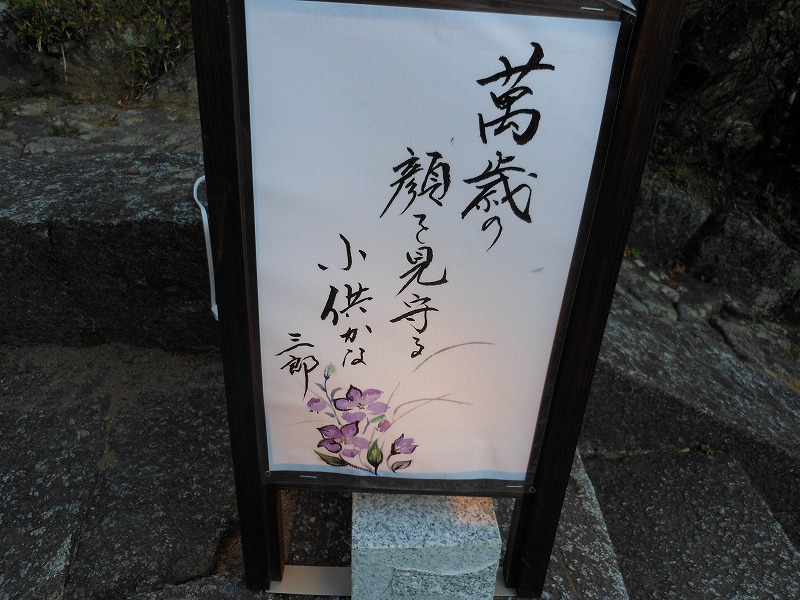 萬歳の
顔を見守る
小供かな
三郎